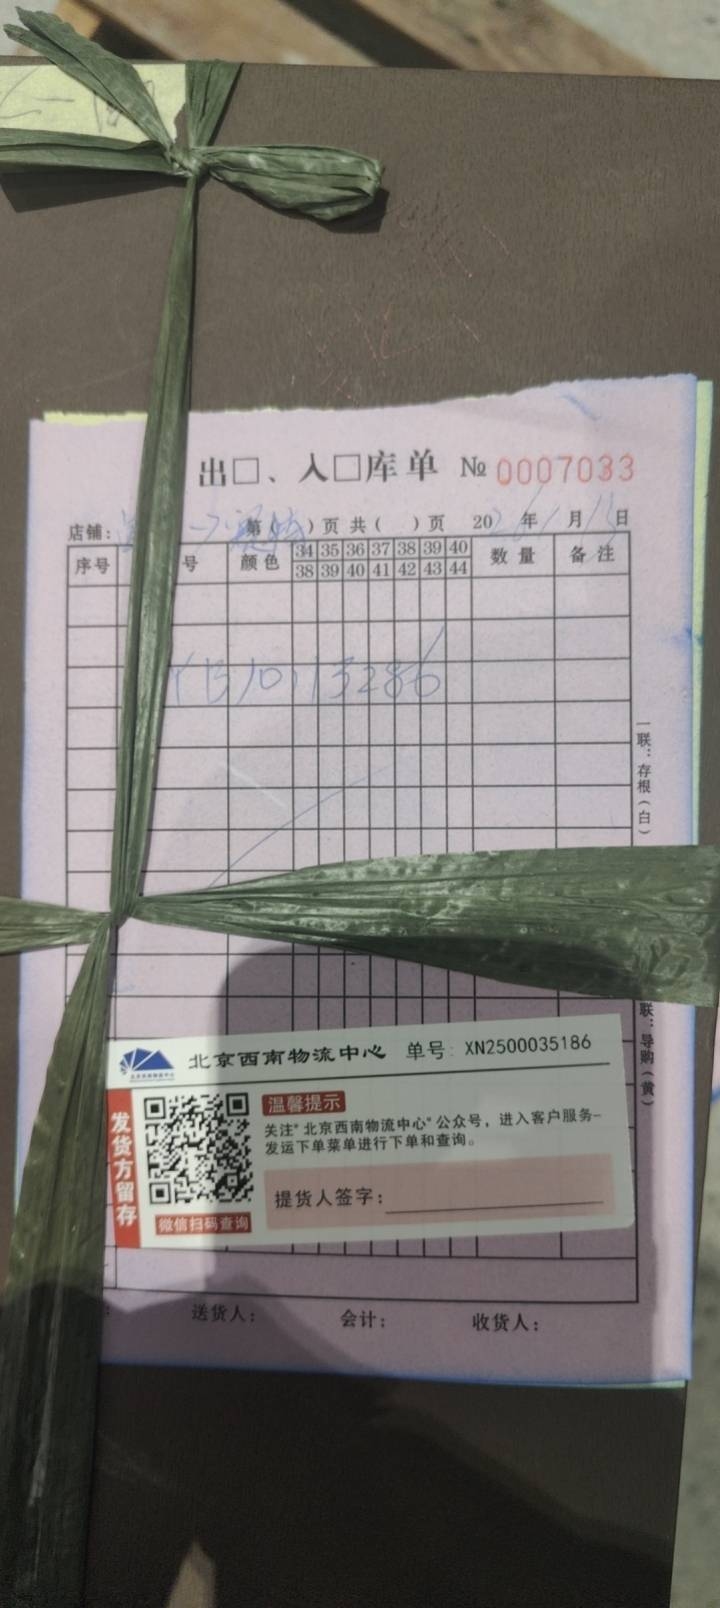 出□、入□库单 № 0007033
店铺: 第( )页 共( )页 20 年 月 日
序号 号 颜色 34 35 36 37 38 39 40 数量 备注
38 39 40 41 42 43 44
一联:存根(白)
联:导购(黄)
北京西南物流中心 单号: XN2500035186
发货方留存
温馨提示
关注“北京西南物流中心”公众号,进入客户服务-
发运下单菜单进行下单和查询。
提货人签字:
微信扫码查询
送货人: 会计: 收货人: